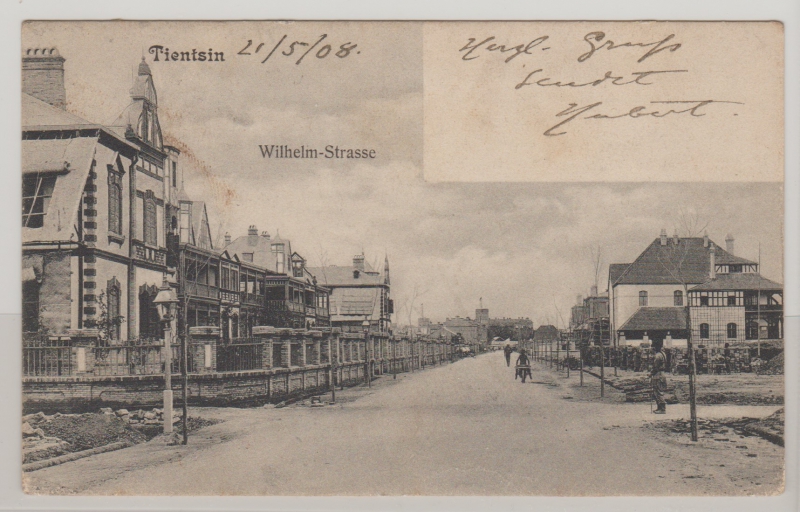 Tientsin 21/5/08.
Herzl. Gruß
sendet
Hubert.
Wilhelm-Strasse